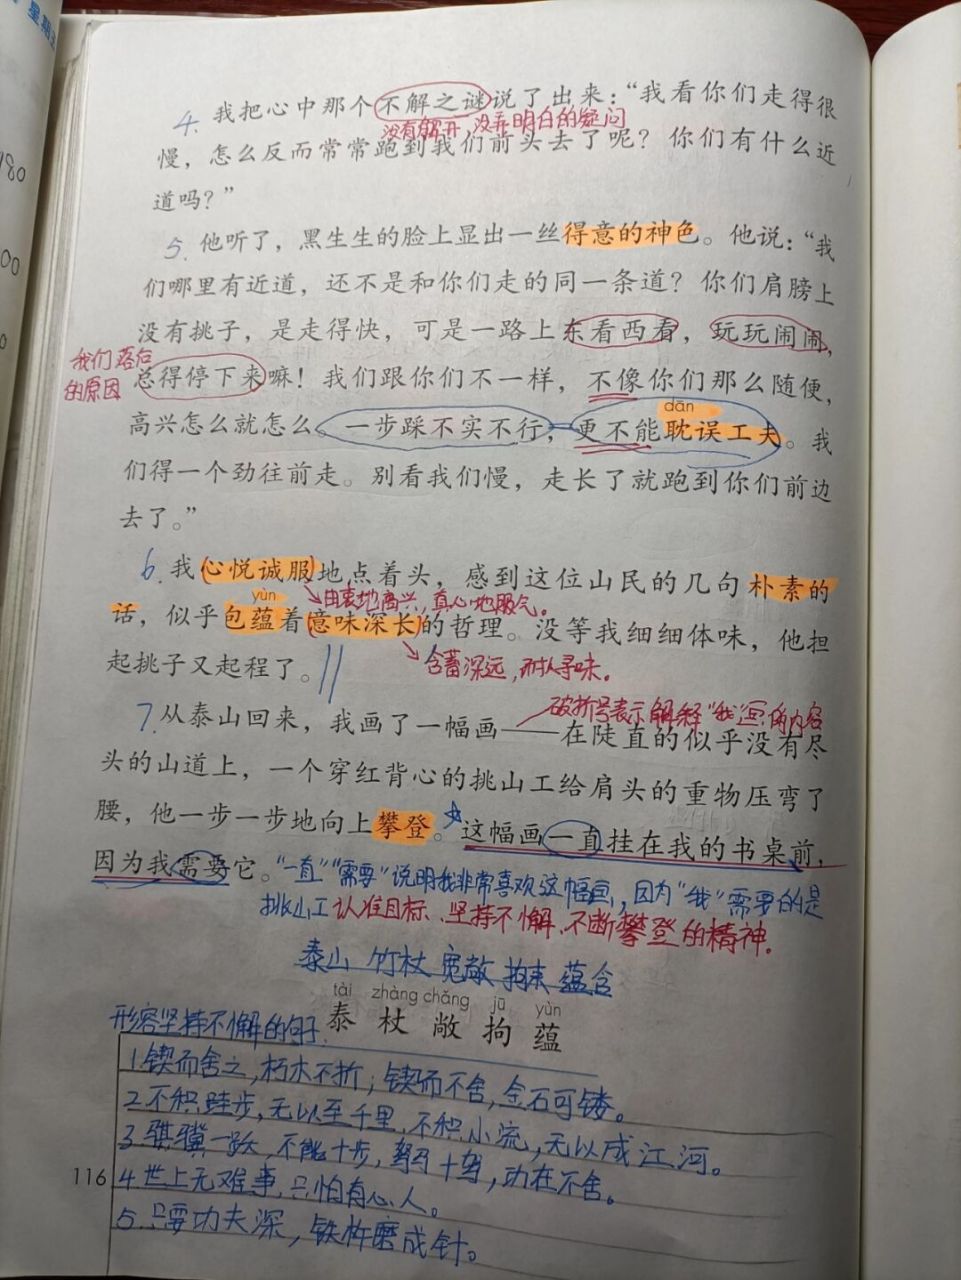 星期
180
00
4. 我把心中那个不解之谜说了出来：“我看你们走得很
没有解开，没弄明白的疑问
慢，怎么反而常常跑到我们前头去了呢？你们有什么近
道吗？”
5. 他听了，黑生生的脸上显出一丝得意的神色。他说：“我
们哪里有近道，还不是和你们走的同一条道？你们肩膀上
没有挑子，是走得快，可是一路上东看西看，玩玩闹闹，
我们落后
的原因
总得停下来嘛！我们跟你们不一样，不像你们那么随便，
dān
高兴怎么就怎么。一步踩不实不行，更不能耽误工夫。我
们得一个劲往前走。别看我们慢，走长了就跑到你们前边
去了。”
6. 我心悦诚服地点着头，感到这位山民的几句朴素的
yùn
由衷地高兴，真心地服气。
话，似乎包蕴着意味深长的哲理。没等我细细体味，他担
含蓄深远，耐人寻味。
起挑子又起程了。
破折号表示解释“我”画的内容
7. 从泰山回来，我画了一幅画——在陡直的似乎没有尽
头的山道上，一个穿红背心的挑山工给肩头的重物压弯了
腰，他一步一步地向上攀登。这幅画一直挂在我的书桌前，
因为我需要它。“一直”“需要”说明我非常喜欢这幅画，因为“我”需要的是
挑山工认准目标、坚持不懈、不断攀登的精神。
泰山 竹杖 宽敞 拘束 蕴含
tài zhàng chǎng jū yùn
泰 杖 敞 拘 蕴
形容坚持不懈的句子
1.锲而舍之，朽木不折；锲而不舍，金石可镂。
2.不积跬步，无以至千里，不积小流，无以成江河。
3.骐骥一跃，不能十步，驽马十驾，功在不舍。
4.世上无难事，只怕有心人。
5.只要功夫深，铁杵磨成针。
116